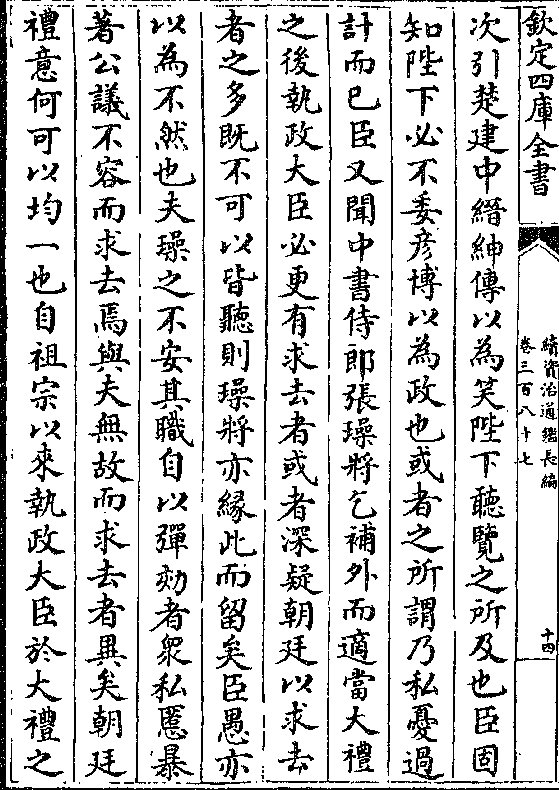 欽定四庫全書
續資治通鑑長編
卷三百八十七
十四
次引楚建中縉紳傳以為笑陛下聽覽之所及也臣固
知陛下必不委彦博以為政也或者之所謂乃私憂過
計而已臣又聞中書侍郎張璪將乞補外而適當大禮
之後執政大臣必更有求去者或者深疑朝廷以求去
者之多既不可以皆聽則璪將亦緣此而留矣臣愚亦
以為不然也夫璪之不安其職自以彈劾者衆私慝暴
著公議不容而求去焉與夫無故而求去者異矣朝廷
禮意何可以均一也自祖宗以來執政大臣於大禮之